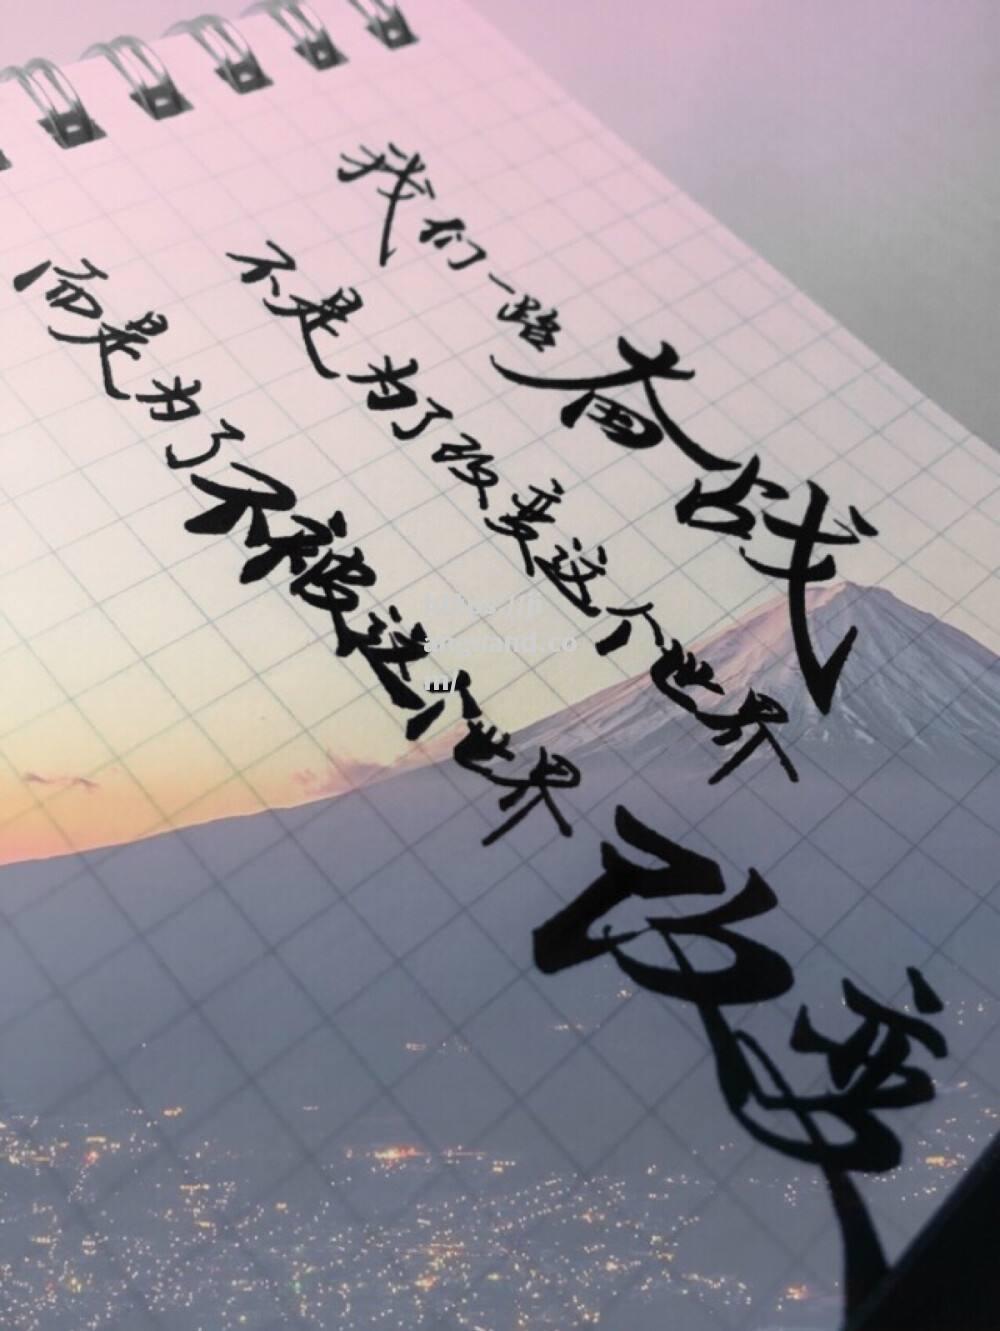 我们一路奋战
不是为了改变这个世界
而是为了不被这个世界
改变
https://ji
angnand.co
m/